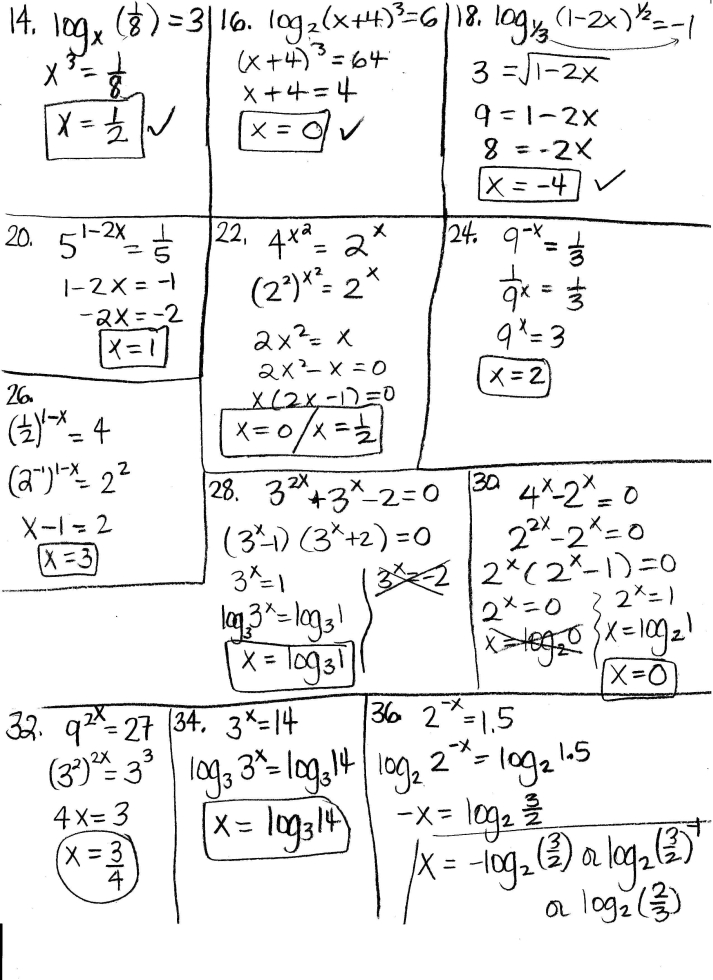 14. logₓ (1/8) = 3
x³ = 1/8
x = 1/2 ✓
16. log₂(x+4)³ = 6
(x+4)³ = 64
x+4 = 4
x = 0 ✓
18. log₁/₃ (1-2x)^½ = -1
3 = √(1-2x)
9 = 1-2x
8 = -2x
x = -4 ✓
20. 5^(1-2x) = 1/5
1-2x = -1
-2x = -2
x = 1
22. 4^(x²) = 2^x
(2²)^(x²) = 2^x
2x² = x
2x² - x = 0
x(2x-1) = 0
x = 0 / x = 1/2
24. 9^(-x) = 1/3
1/9^x = 1/3
9^x = 3
x = 2
26.
(1/2)^(1-x) = 4
(2⁻¹)^(1-x) = 2²
x-1 = 2
x = 3
28. 3^(2x) + 3^x - 2 = 0
(3^x - 1)(3^x + 2) = 0
3^x = 1
3^x = -2
log₃3^x = log₃1
x = log₃1
30. 4^x - 2^x = 0
2^(2x) - 2^x = 0
2^x(2^x - 1) = 0
2^x = 0
x = log₂0
2^x = 1
x = log₂1
x = 0
32. 9^(2x) = 27
(3²)^(2x) = 3³
4x = 3
x = 3/4
34. 3^x = 14
log₃ 3^x = log₃14
x = log₃14
36. 2^(-x) = 1.5
log₂ 2^(-x) = log₂ 1.5
-x = log₂ 3/2
x = -log₂(3/2) or log₂(3/2)⁻¹
or log₂(2/3)